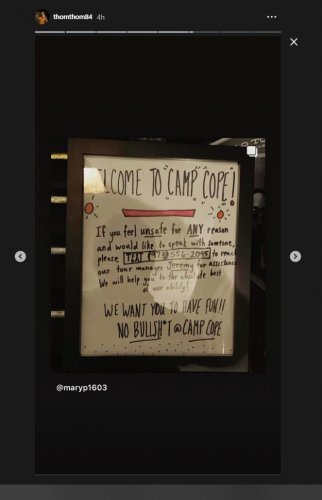 thomthom84 4h
WELCOME TO CAMP COPE!
If you feel unsafe for ANY reason
and would like to speak with someone,
please TEXT (973) 556-2095 to reach
our tour manager Jeremy for assistance
We will help you to the absolute best
of our ability!
WE WANT YOU TO HAVE FUN!!
NO BULLSH*T @ CAMP COPE
@maryp1603